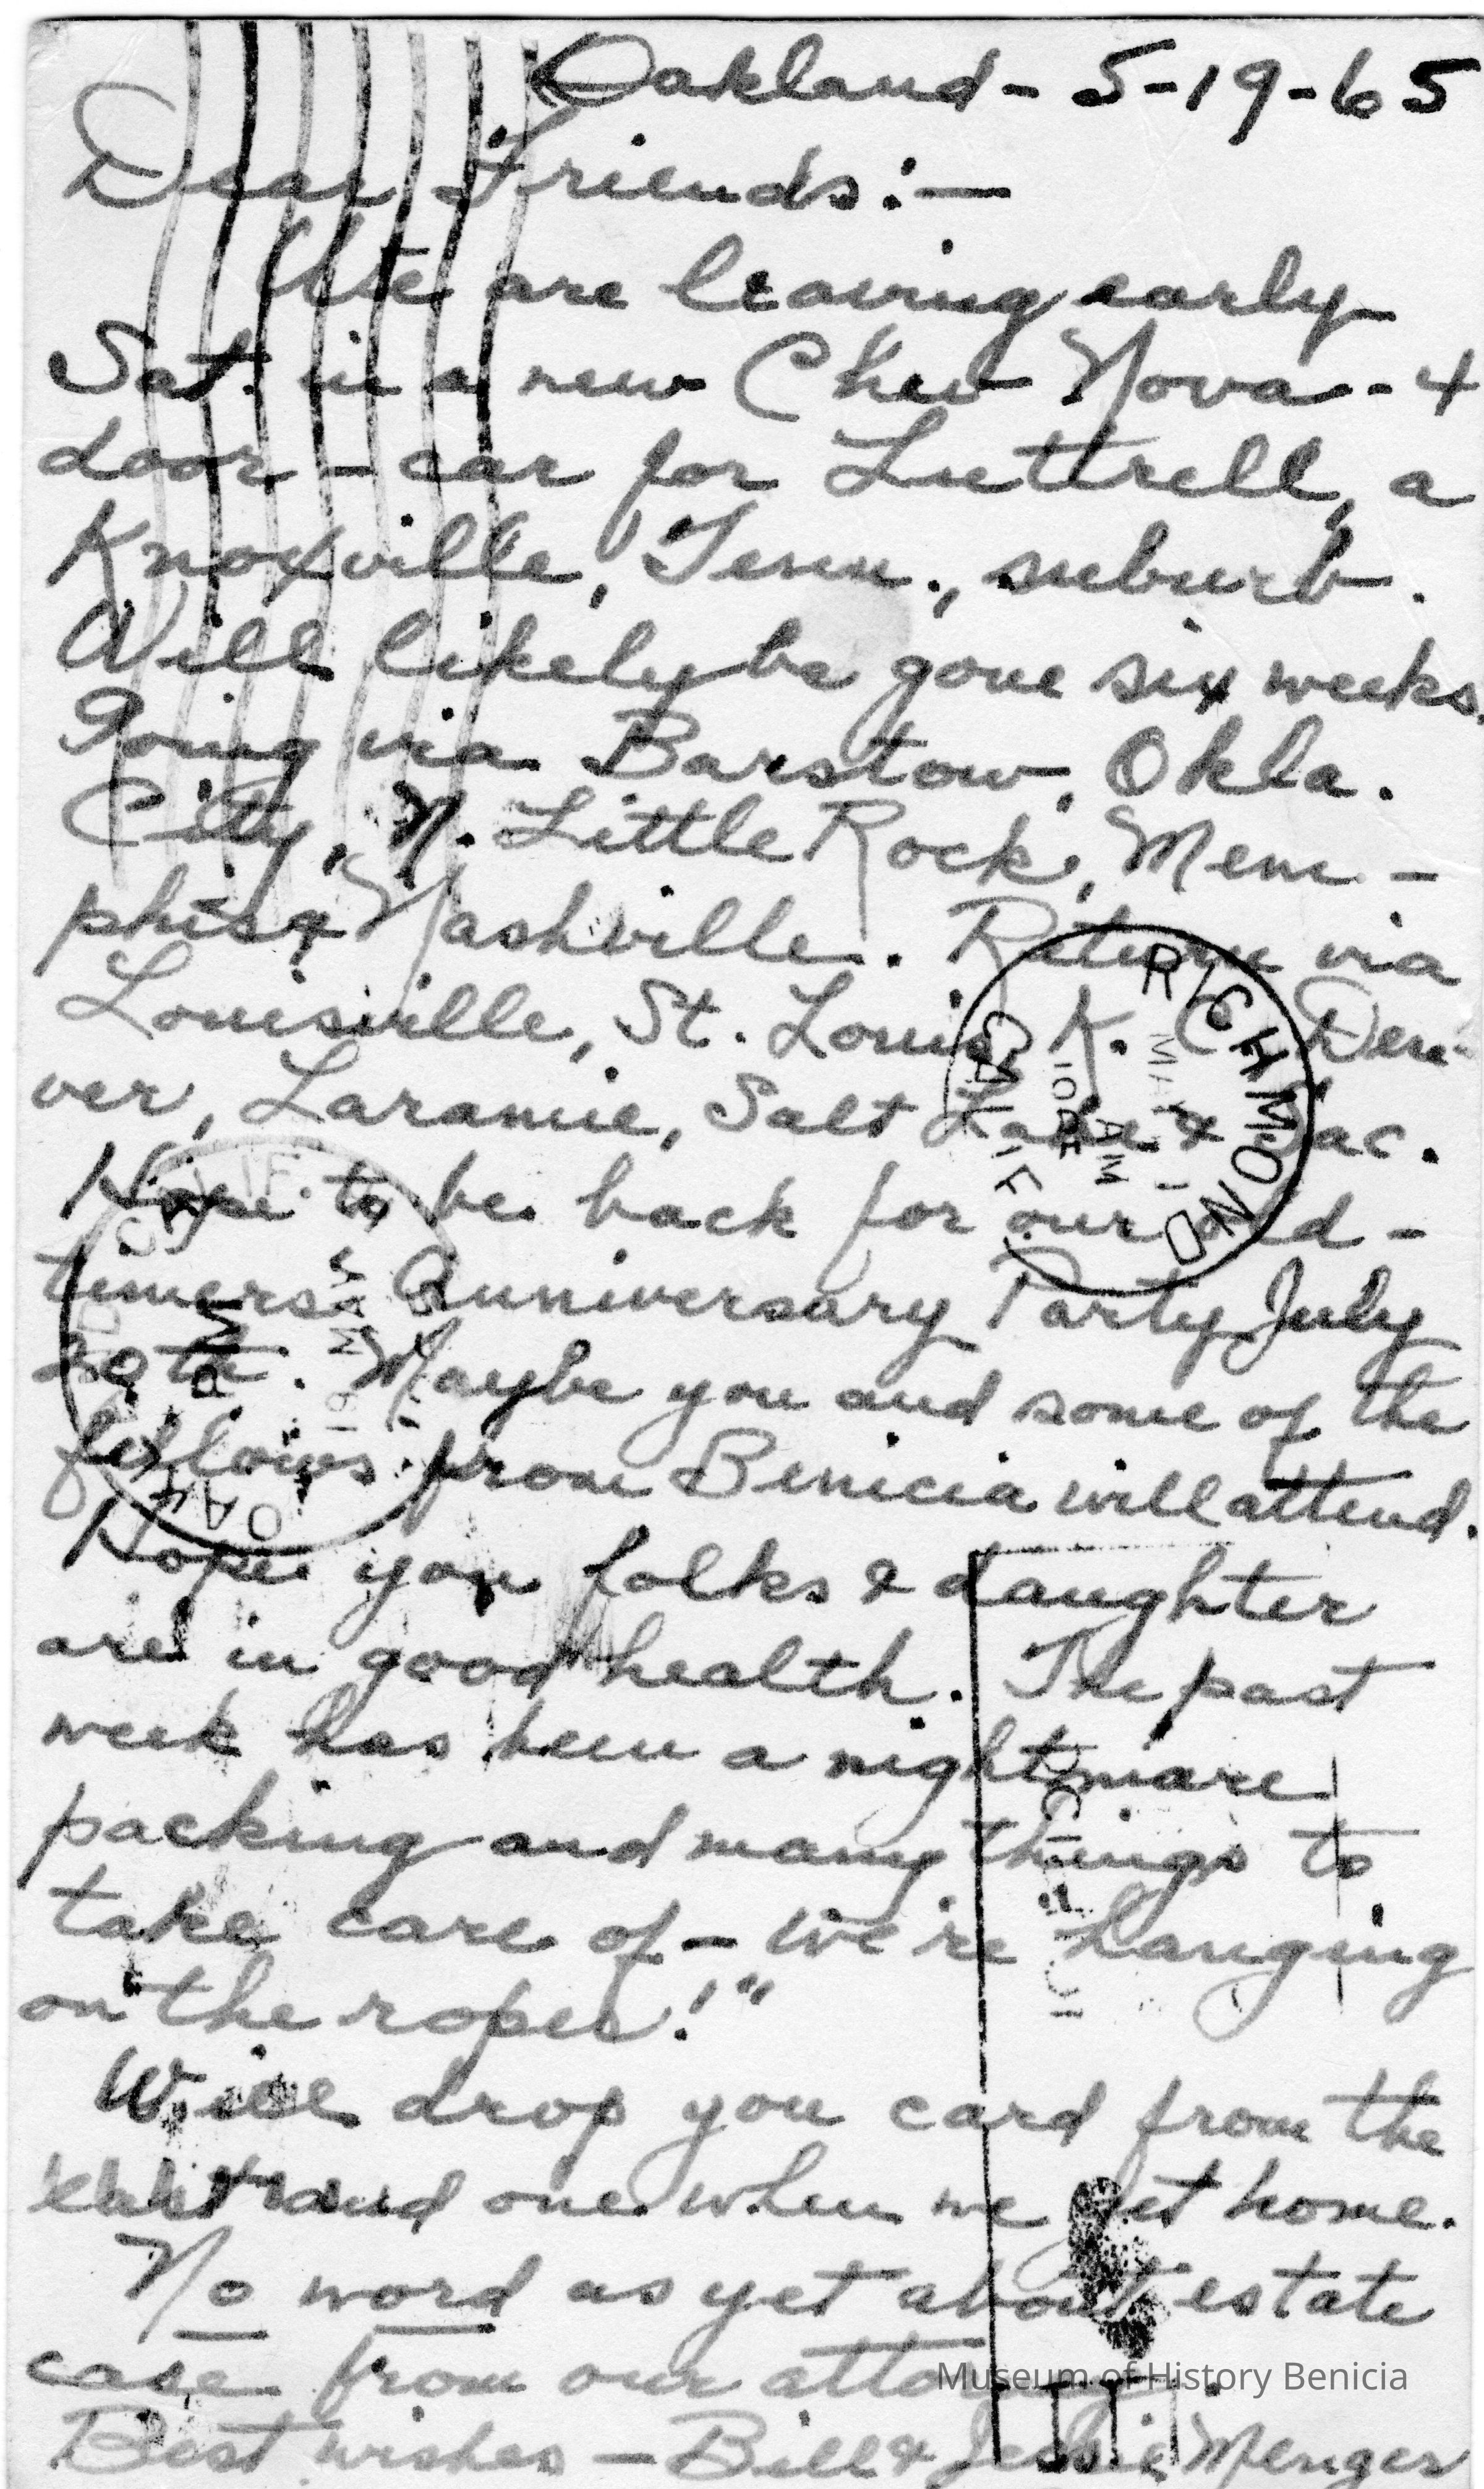 Oakland - 5-19-65
Dear Friends:—
We are leaving early
Sat. in a new Chev Nova - 4
door - car for Luttrell, a
Knoxville, Tenn., suburb.
Will likely be gone six weeks.
Going via Barstow, Okla.
City, N. Little Rock, Mem-
phis & Nashville. Return via
Louisville, St. Louis, K. C. Den-
ver, Laramie, Salt Lake & Sac.
Hope to be back for our old-
timers Anniversary Party July
20th. Maybe you and some of the
fellows from Benicia will attend.
Hope you folks & daughter
are in good health. The past
week has been a nightmare
packing and many things to
take care of - we're hanging
on the ropes!"
Will drop you card from the
east and one when we get home.
No word as yet about estate
case from our attorney.
Best wishes — Bill & Jessie Menger
RICHMOND
CALIF.
MAY
10
AM
CALIF
PM
19 MAY
OAK
Museum of History Benicia